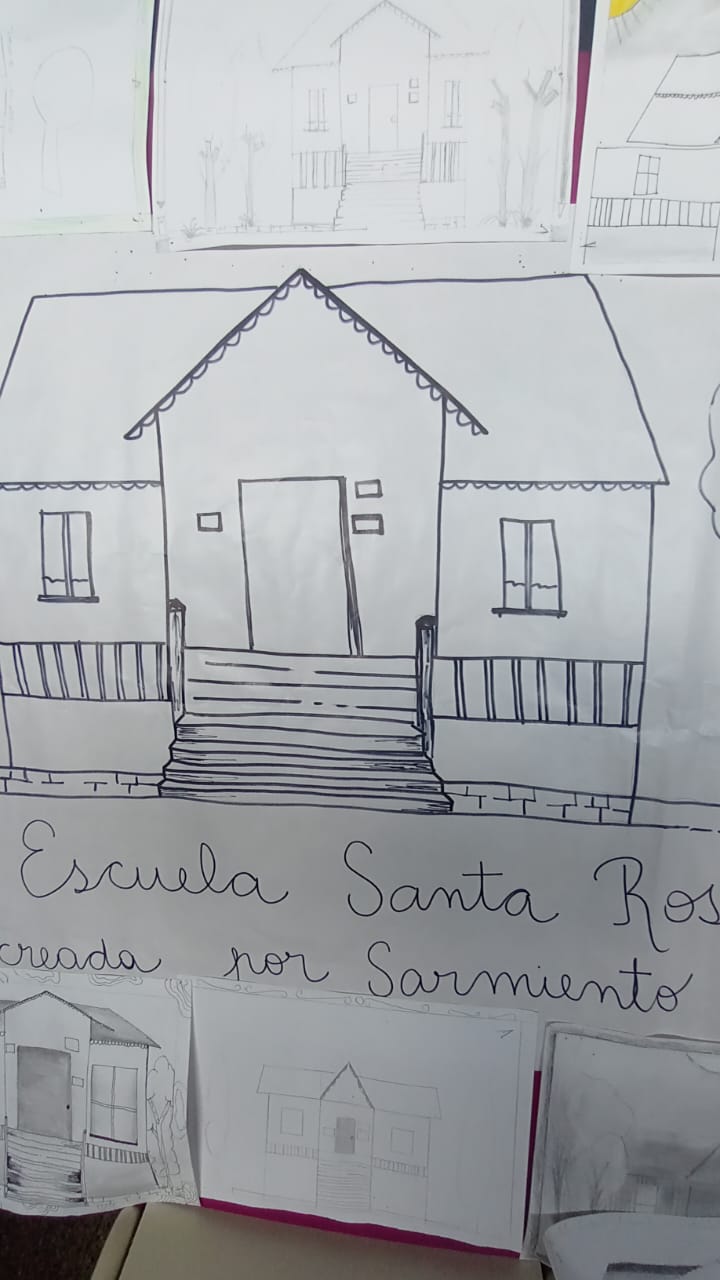 Escuela Santa Ros
creada por Sarmiento